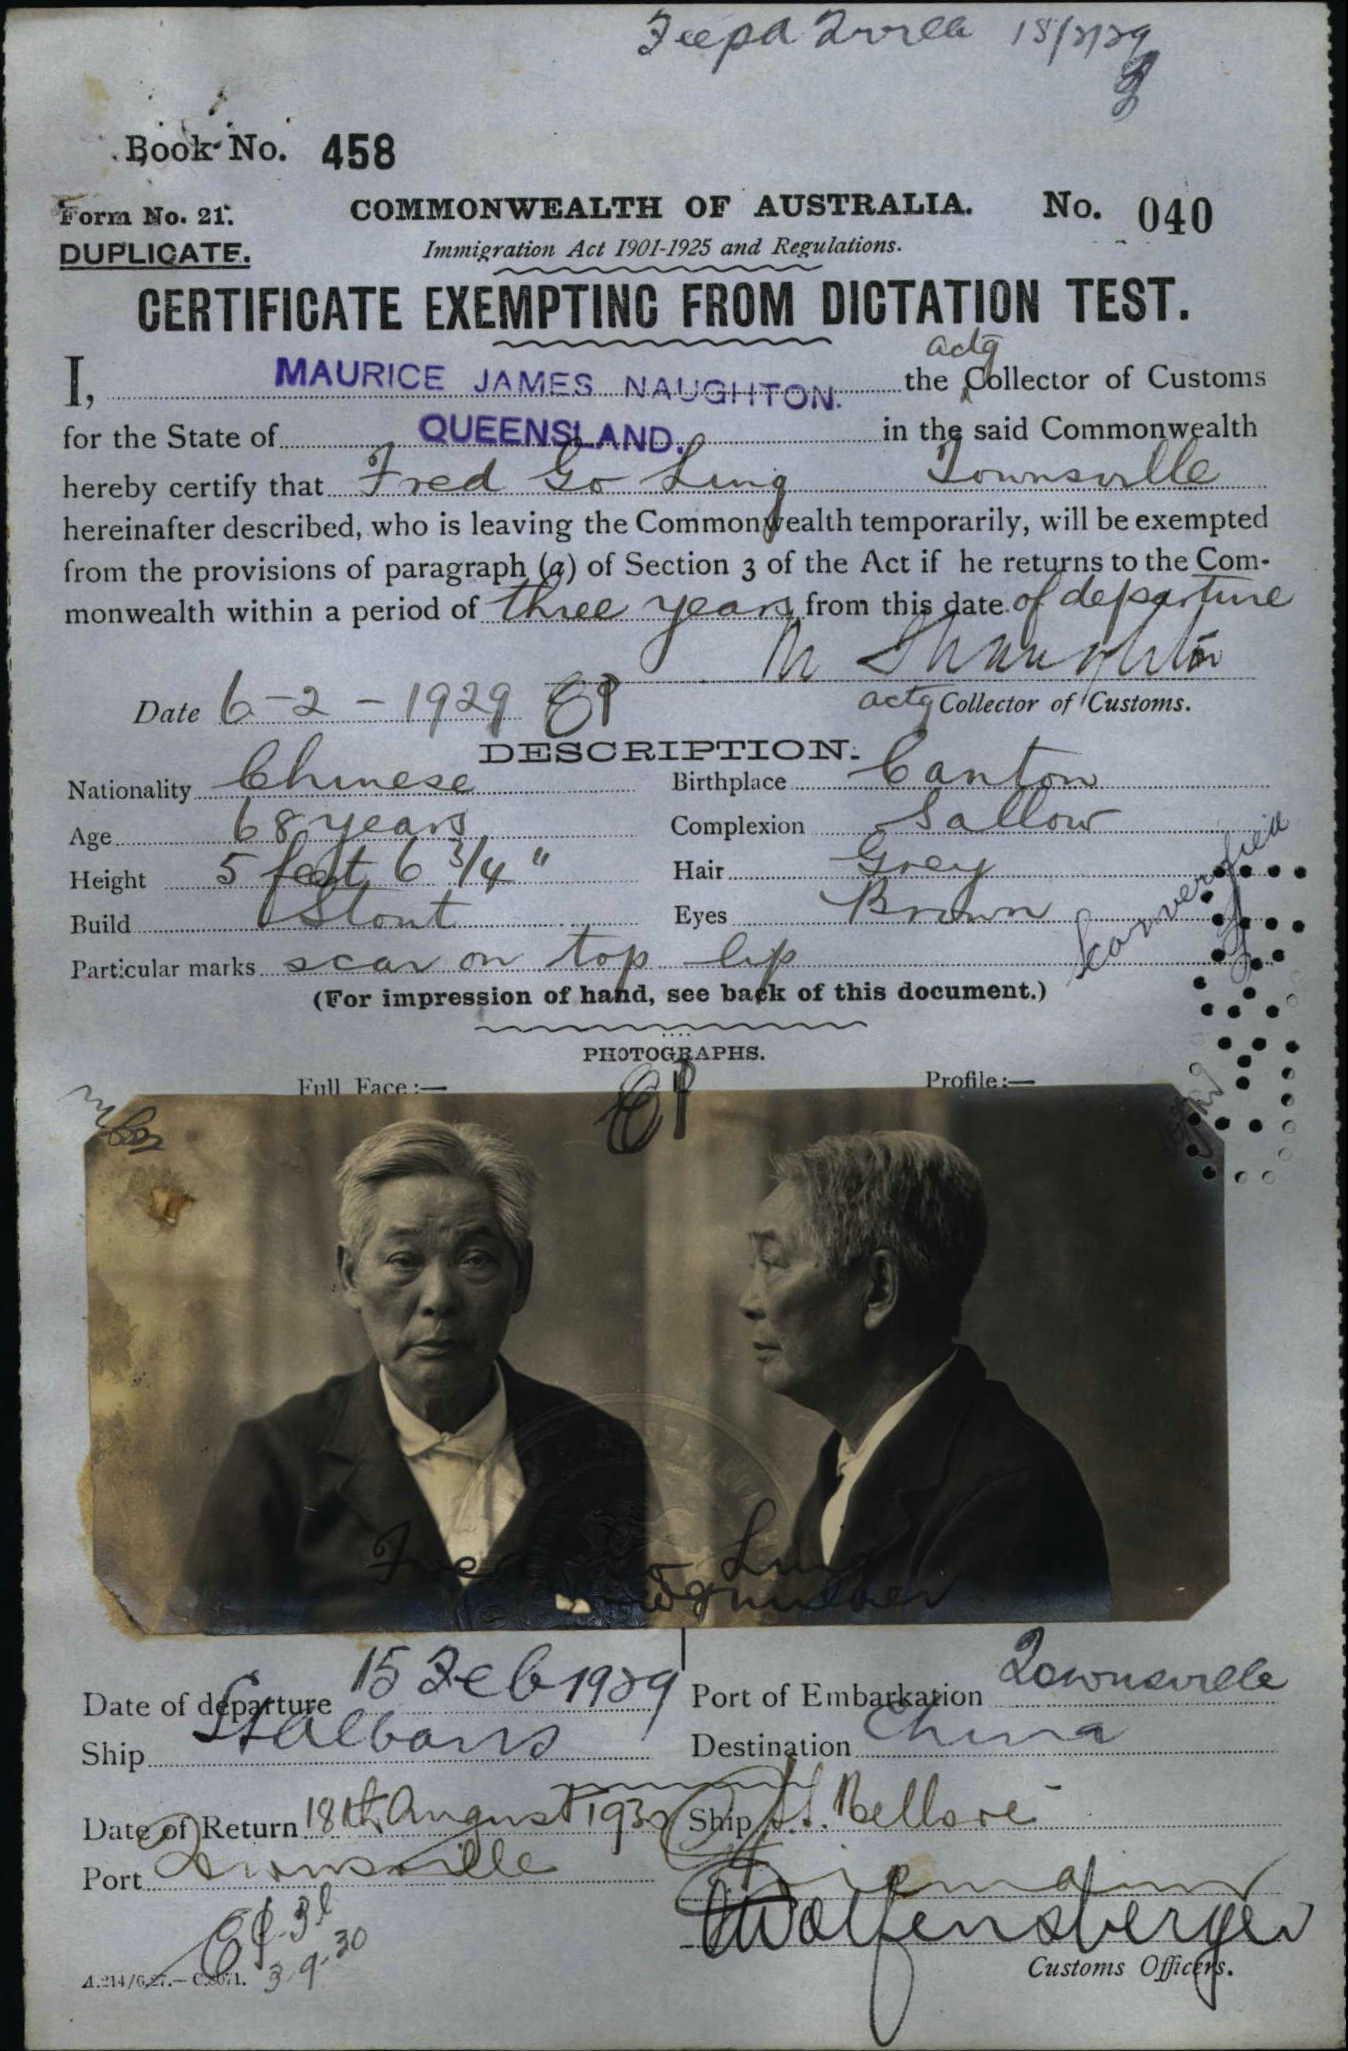 15/2/29
Book No. 458
Form No. 21.
COMMONWEALTH OF AUSTRALIA.
No. 040
DUPLICATE.
Immigration Act 1901-1925 and Regulations.
CERTIFICATE EXEMPTING FROM DICTATION TEST.
actg
I, MAURICE JAMES NAUGHTON. the Collector of Customs
for the State of QUEENSLAND. in the said Commonwealth
hereby certify that Fred Go Ling Townsville
hereinafter described, who is leaving the Commonwealth temporarily, will be exempted
from the provisions of paragraph (a) of Section 3 of the Act if he returns to the Com-
monwealth within a period of three years from this date of departure
Date 6-2-1929
actg Collector of Customs.
DESCRIPTION.
Nationality Chinese
Birthplace Canton
Age 68 years
Complexion Sallow
Height 5 feet 6 3/4"
Hair Grey
Build Stout
Eyes Brown
Particular marks scar on top lip
(For impression of hand, see back of this document.)
PHOTOGRAPHS.
Full Face:—
Profile:—
Fred Go Ling
Date of departure 15 Feb 1929
Port of Embarkation Townsville
Ship St Albans
Destination China
Date of Return 18th August 1930
Ship S.S. Nellore
Port Townsville
Wolfensberger
3.9.30
Customs Officers.